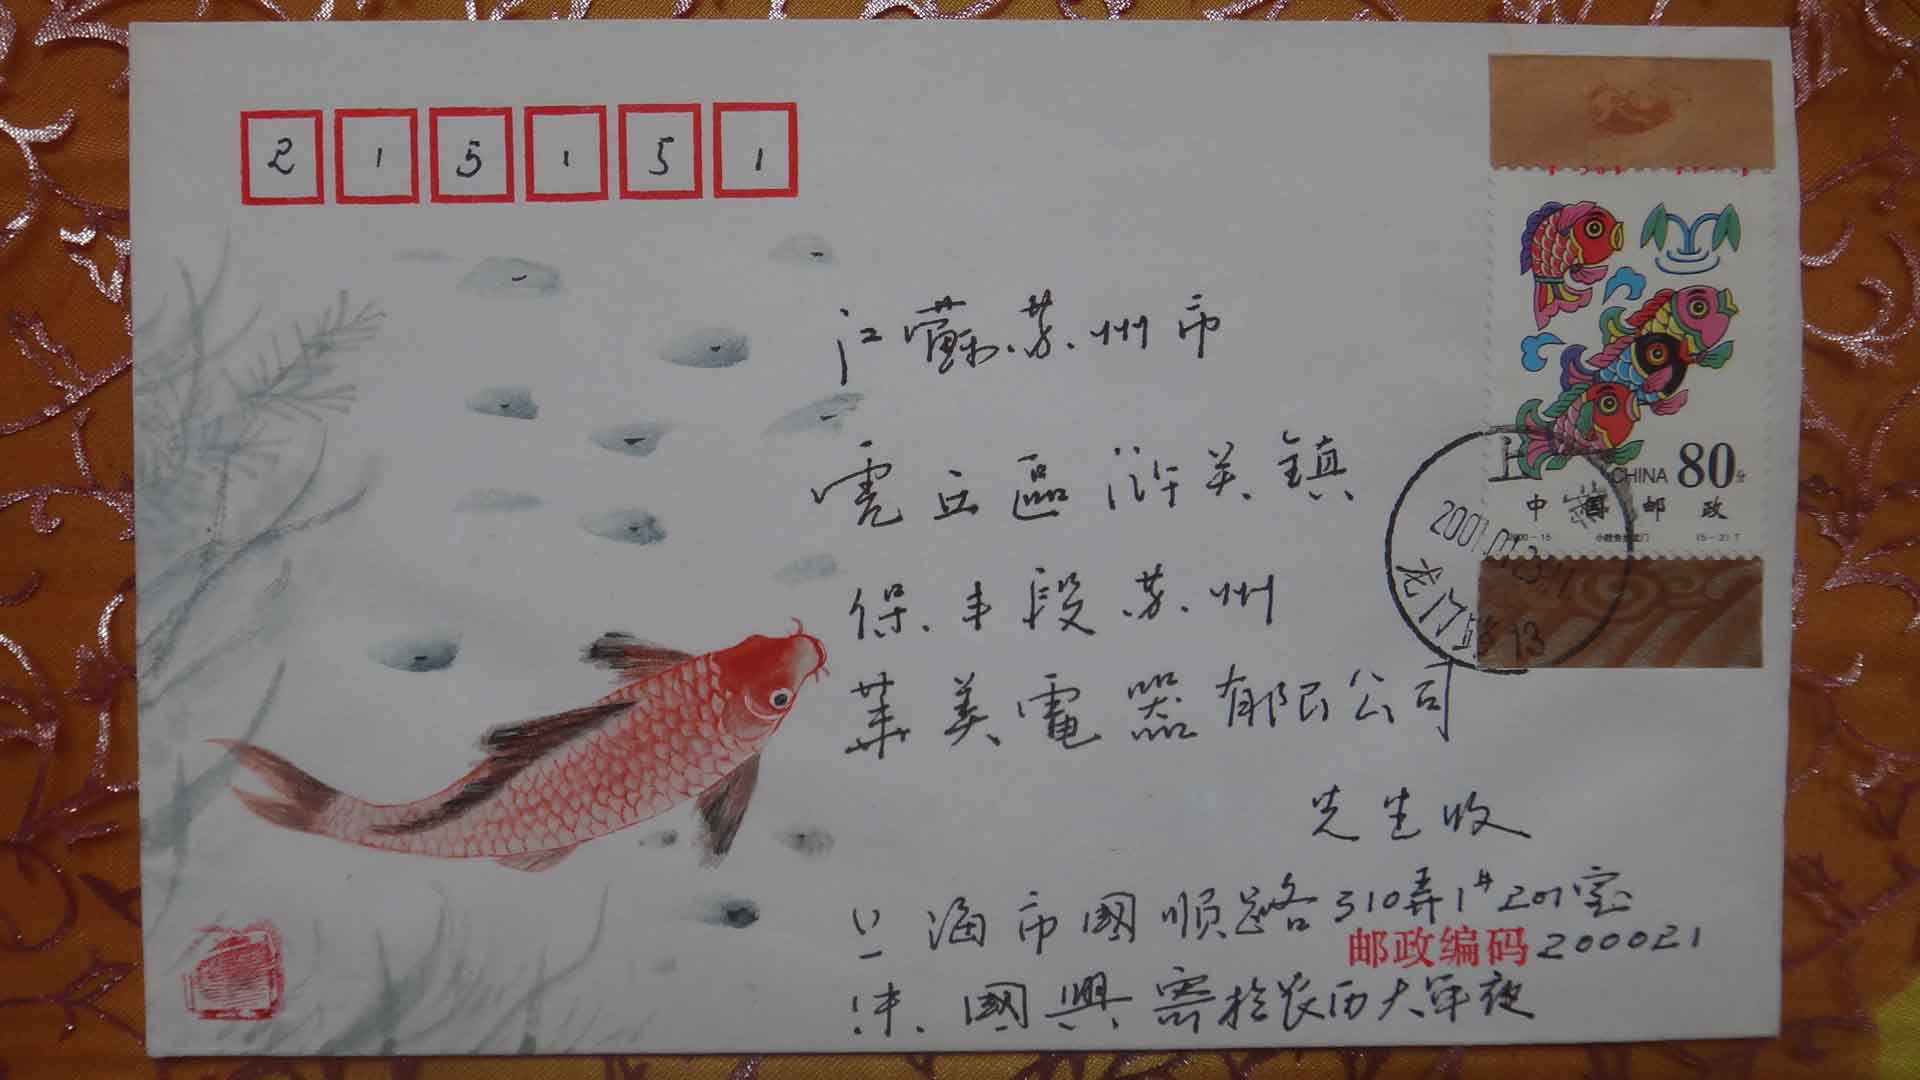 215151
江蘇苏州市
虎丘區浒关鎮
保丰段苏州
華美電器有限公司
先生收
上海市國顺路310弄1#201室
邮政编码200021
國興寄於农历大年夜
CHINA 80分
中国邮政
2000-15 小鲤鱼跳龙门 (5-2)T
上海
2001.01.23.11
龙门